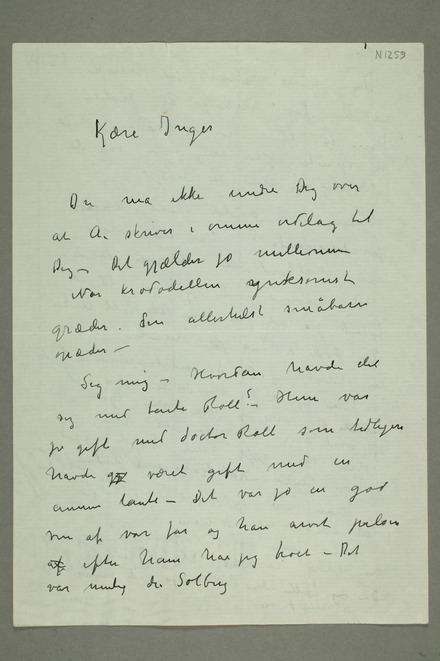 N1253
Kære Inger
Du må ikke undre Dig over
at A. skriver i omme til
Dig – Det gælder jo millionen
Når krokodillen synksomst
græder. Den allerhelst småbørn
opæder –
Sig mig – Hvordan havde det
sig med tante Roll? – Hun var
jo gift med doctor Roll som tidligere
havde været gift med en
anden tante – Det var jo en god
ven af var far og han
efter ham har jeg – Det
var mulig de Solberg